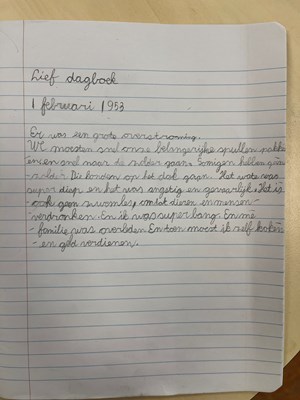 Lief dagboek
1 februari 1953
Er was een grote overstroming.
We moesten snel onze belangerijke spullen pakke
en snel naar de solder gaan. Somigen hebben geen
solder. Die konden op het dak gaan. Het water was
super diep en het was angstig en gevaarlijk. Het is
ook geen omdat dieren en mensen
verdronken. En ik was super bang. En mè
familie was overleden En toen moest ik self koken
en geld verdienen.